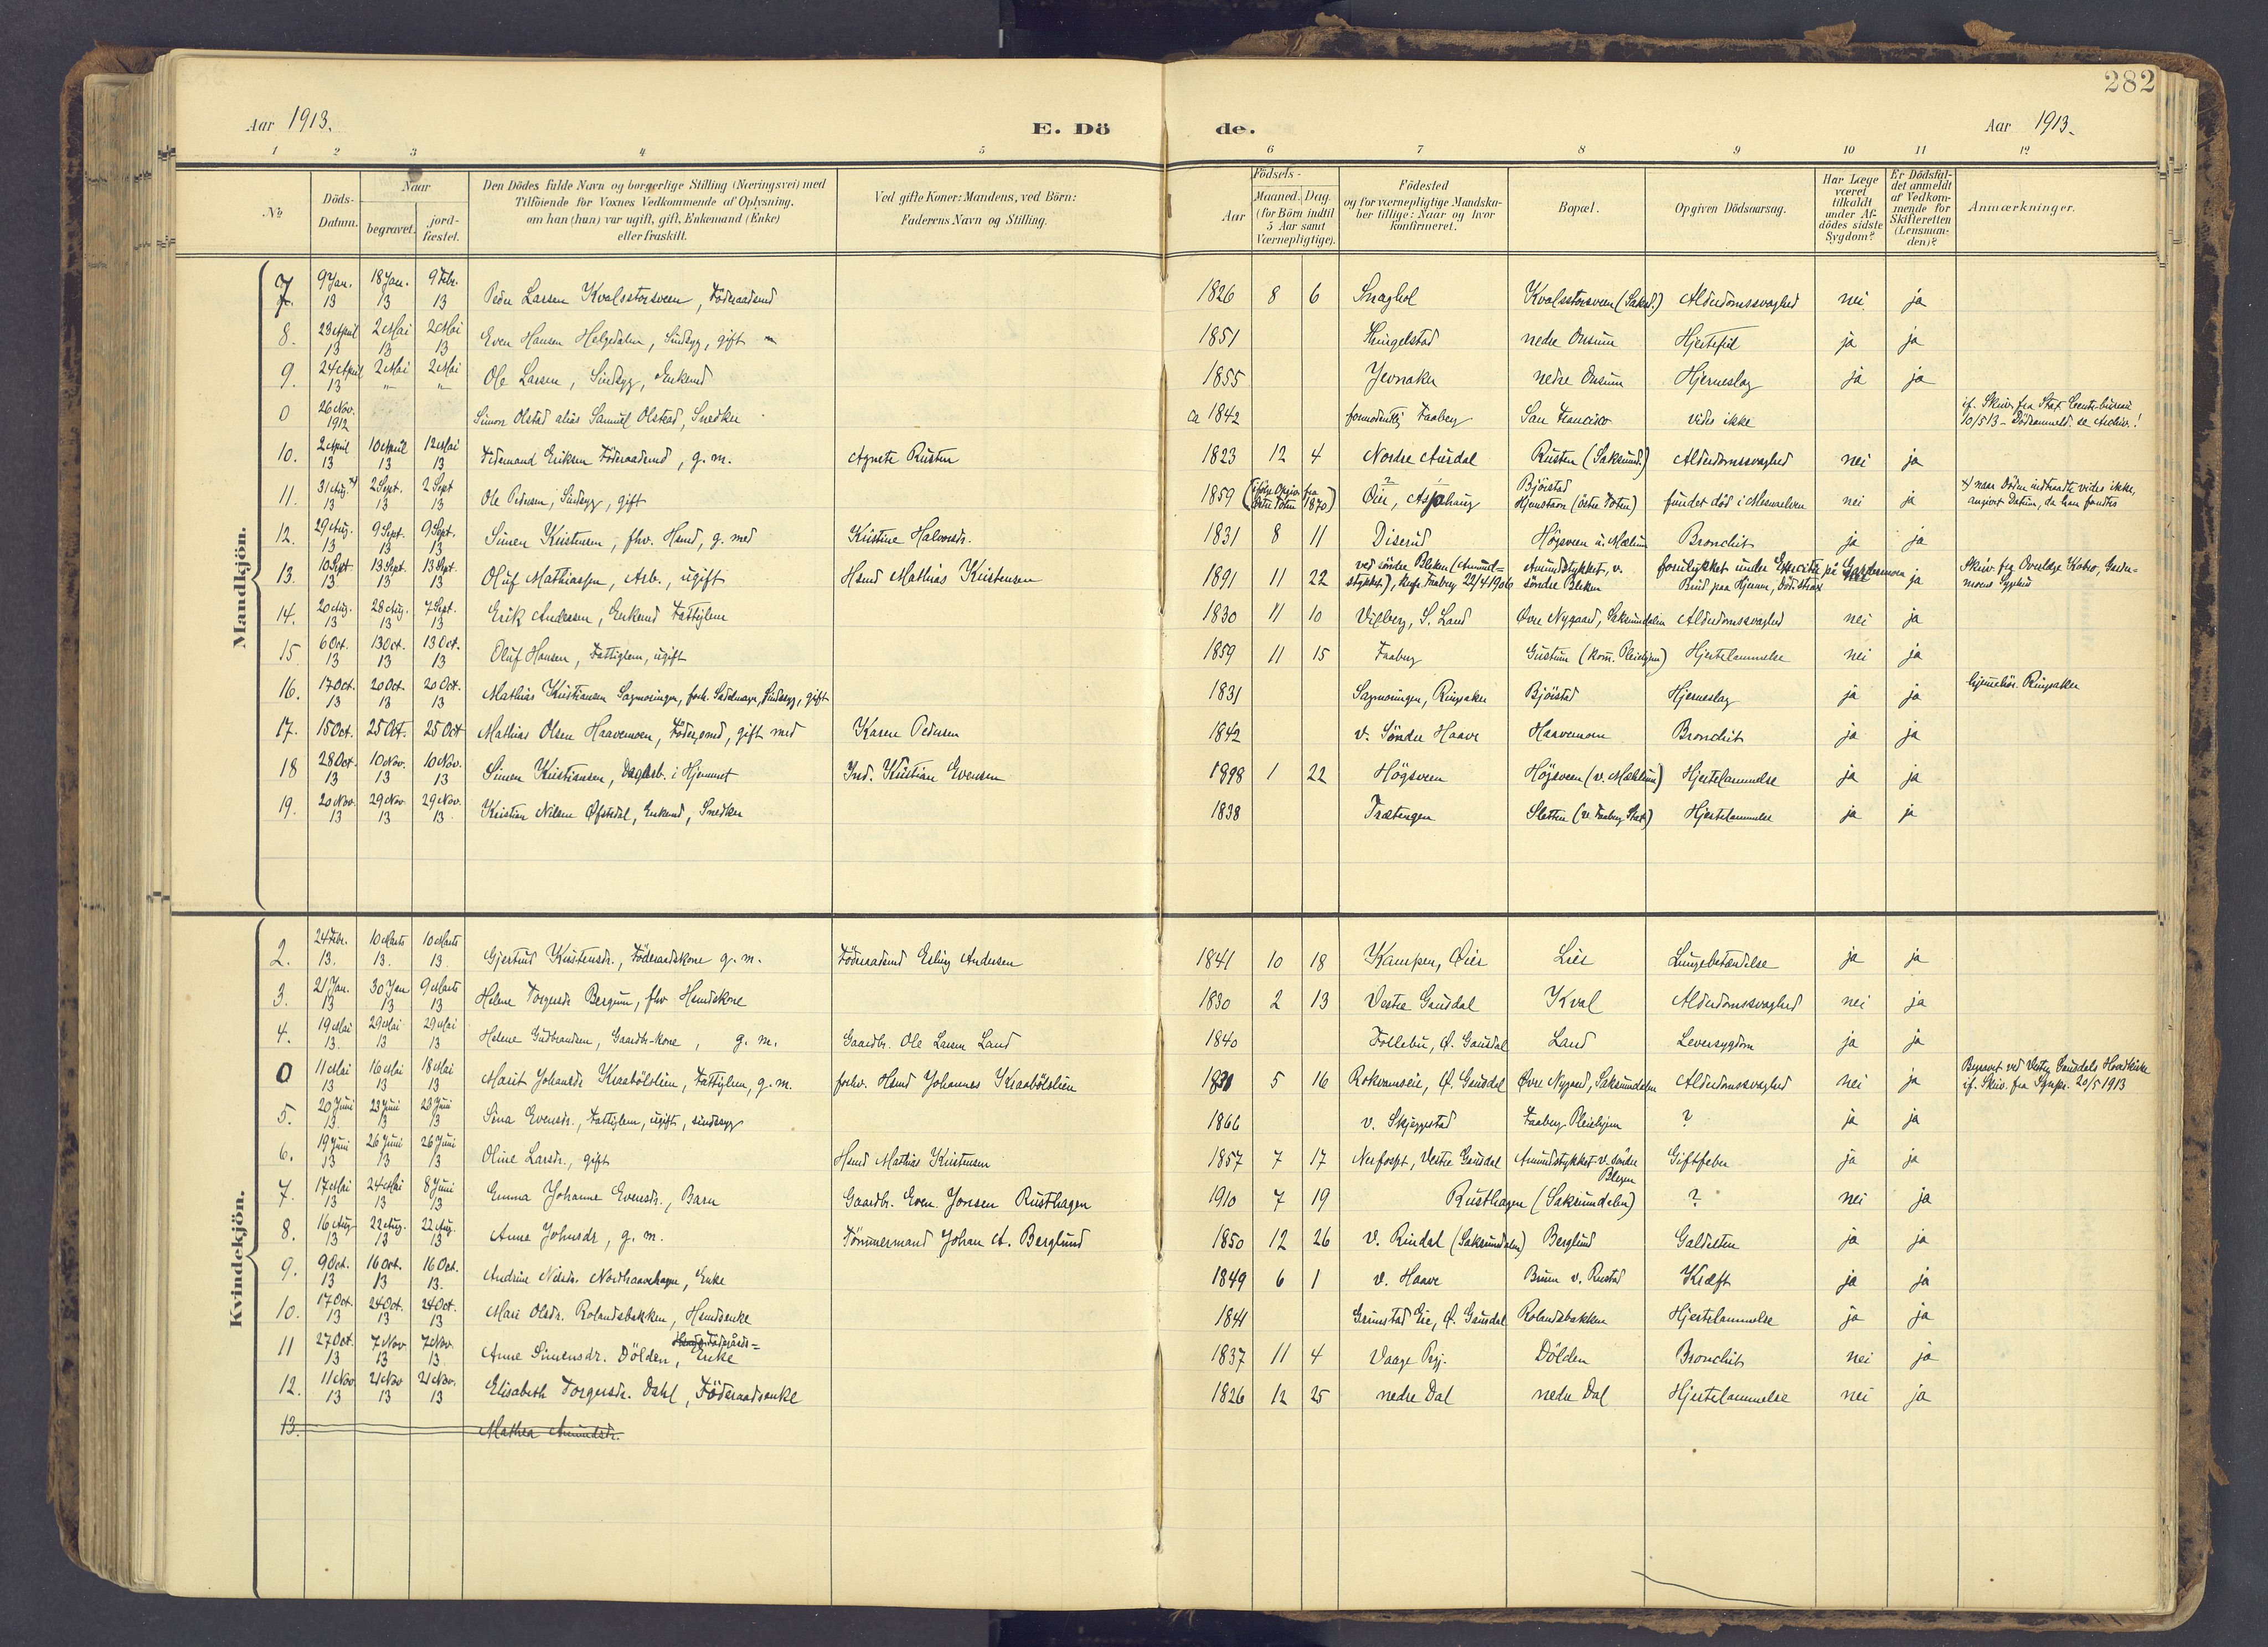 282
Aar 1913.
E. Döde.
Aar 1913.
1 2 3 4 5 6 7 8 9 10 11 12
№
Döds-Datum.
Naar
begravet.
jordfæstet.
Den Dödes fulde Navn og borgerlige Stilling (Næringsvei) med
Tilföiende for Voxnes Vedkommende af Oplysning.
om han (hun) var ugift, gift, Enkemand (Enke)
eller fraskilt.
Ved gifte Koner: Mandens, ved Börn:
Faderens Navn og Stilling.
Födsels-
Aar
Maaned. Dag.
(for Börn indtil
5 Aar samt
Værnepligtige).
Födested
og for værnepligtige Mandskaber tillige: Naar og hvor
konfirmeret.
Bopæl.
Opgiven Dödsaarsag.
Har Læge
været
tilkaldt
under Afdödes sidste
Sygdom?
Er Dödsfaldet anmeldt
af Vedkommende for
Skifteretten
(Lensmanden)?
Anmærkninger.
Mandkjön.
7. 9 Jan. 13 18 Jan. 13 9 Febr. 13 Peder Larsen Kvalsstorsveen, Föderaadsmd 1826 8 6 Snaghol Kvalsstorsveen (Saksd.) Alderdomssvaghed nei ja
8. 23 April 13 2 Mai 13 2 Mai 13 Even Hansen Helgedalen, Sindsyg, gift 1851 Hringelstad nedre Onsum Hjertefeil ja ja
9. 24 April 13 2 Mai " 2 Mai " Ole Larsen, Sindsyg, Enkemd 1855 Jevnaker nedre Onsum Hjerneslag ja ja
0 26 Nov. 1912 Simon Olstad alias Samuel Olstead, Snedker ca 1842 formodentlig Faaberg San Francisco vides ikke if. Skriv. fra Stat. Centr.büreau 10/5 13 - Dödsanmeld. se Archiv!
10. 2 April 13 10 April 13 12 Mai 13 Tidemand Eriksen Föderaadsmd, g. m. Agnete Rusten 1823 12 4 Nordre Aurdal Rusten (Saksumd.) Alderdomssvaghed nei ja
11. 31 Aug. x) 13 2 Sept. 13 2 Sept 13 Ole Pedersen, Sindsyg, gift 1859 (ifölge Opgiv. fra Östre Toten 1870) Öier, Bjöistad Hjemstavn (östre Toten) fundet död i Mesnaelven nei ja x) naar Döden indtraadte vides ikke, angivet Datum, da han fandtes
12. 29 Aug. 13 9 Sept. 13 9 Sept. 13 Simen Kristensen, fhv. Hsmd, g. med Kristine Halvorsdr. 1831 8 11 Diserud Högsveen u. Mælum Bronchit ja ja
13. 10 Sept. 13 13 Sept. 13 13 Sept. 13 Oluf Mathiassen, Arb., ugift Hsmd Mathias Kristensen 1891 11 22 ved söndre Bleken (Amundstykket), konf. Faaberg 22/4 1906 Amundstykket, v. söndre Bleken forulykket under Exercits på Gardermoen ja Skriv. fra Overlæge Kobro, Gardermoens Sygehus
14. 20 Aug. 13 28 Aug. 13 7 Sept. 13 Erik Andersen, Enkemd Fattiglem 1830 11 10 Vilberg, S. Land Övre Nygaard, Saksumdalen Alderdomssvaghed nei ja
15 6 Oct. 13 13 Oct. 13 13 Oct. 13 Oluf Hansen, Fattiglem, ugift 1859 11 15 Faaberg Gustum (kom. Pleiehjem) Hjertelammelse nei ja
16. 17 Oct. 13 20 Oct. 13 20 Oct. 13 Mathias Kristiansen Sagmoringen, forh. Sadelmager, Sindsyg, gift 1831 Sagmoringen, Ringsaker Bjöistad Hjerneslag ja ja hjemehör. Ringsaker
17. 15 Oct. 25 Oct. 25 Oct Mathias Olsen Haavemoen, Föderaadsmd, gift med Karen Pedersen 1842 v. Söndre Haave Haavemoen Bronchit ja ja
18 28 Oct. 13 10 Nov. 13 10 Nov. 13 Simen Kristiansen, Dagarb. i Hjemmet Ind. Kristian Evensen 1898 1 22 Högsveen Högsveen (v. Mælum) Hjertelammelse ja ja
19. 20 Nov. 13 29 Nov. 13 29 Nov. 13 Kristian Nilsen Öfstedal, Enkemd, Snedker 1838 Trætengen Sletten (v. Faaberg Stat.) Hjertelammelse ja ja
Kvindekjön.
2. 24 Febr. 13. 10 Marts 13. 10 Marts 13 Gjertrud Kristensdr., Föderaadskone g. m. Föderaadsmd Erling Andersen 1841 10 18 Kampen, Öier Lier Lungebetændelse ja ja
3. 21 Jan. 13 30 Jan 13 9 Marts 13 Helene Torgersdr Bergum, fhv Hsmdskone 1830 2 13 Vestre Gausdal Kval Alderdomssvaghed nei ja
4. 19 Mai 13. 29 Mai 13 29 Mai 13 Helene Gudbrandsen, Gaardbr-kone, g. m. Gaardbr. Ole Larsen Land 1840 Follebu, Ö. Gausdal Land Leversygdom ja ja
0 11 Mai 13 16 Mai 13 18 Mai 13 Marit Johansdr Kraabölslien, Fattiglem, g. m. forhv. Hsmd Johannes Kraabölslien 1831 5 16 Rokvamseie, Ö. Gausdal Övre Nygaard, Saksumdalen Alderdomssvaghed nei ja Begravet ved Vestre Gausdals Hovedkirke if. Skriv. fra Sgnpr. 20/5 1913
5. 20 Juni 13. 23 Juni 13 23 Juni 13 Sina Evensdr., Fattiglem, ugift, sindssyg 1866 v. Skjeggestad Faaberg Pleiehjem ? ja ja
6. 19 Juni 13 26 Juni 13 26 Juni 13 Oline Larsdr., gift Hsmd Mathias Kristensen 1857 7 17 Vestre Gausdal Amundstykket v. söndre Bleken Giftfeber ja ja
7. 17 Mai 13 24 Mai 13 8 Juni 13 Emma Johanne Evensdr., Barn Gaardbr. Even Jonsen Rusthagen 1910 7 19 Rusthagen (Saksumdalen) ? nei ja
8. 16 Aug 13 22 Aug. 13 22 Aug. 13 Anne Johnsdr, g. m. Tömmermand Johan A. Berglund 1850 12 26 v. Rindal (Saksumdalen) Berglund Galdesten ja ja
9. 9 Oct. 13 16 Oct. 13 16 Oct. 13. Andrine Nilsdr. Nordhaavehagen, Enke 1849 6 1 v. Haave Bruun v. Rustad Kræft ja ja
10. 17 Oct. 13 24 Oct. 13 24 Oct. 13 Mari Olsdr. Rolandsbakken, Hsmdsenke 1841 Grimstad Eie, Ö. Gausdal Rolandsbakken Hjertelammelse ja ja
11 27 Oct. 13 7 Nov 13 7 Nov. 13. Anne Simensdr. Dölden, Föderåds=Enke 1837 11 4 Vaage Prgj. Dölden Bronchit nei ja
12. 11 Nov 13 21 Nov 13 21 Nov. 13 Elisabeth Torgersdr. Dahl, Föderaadsenke 1826 12 25 nedre Dal nedre Dal Hjertelammelse nei ja
13. Mathea Amundsdr.